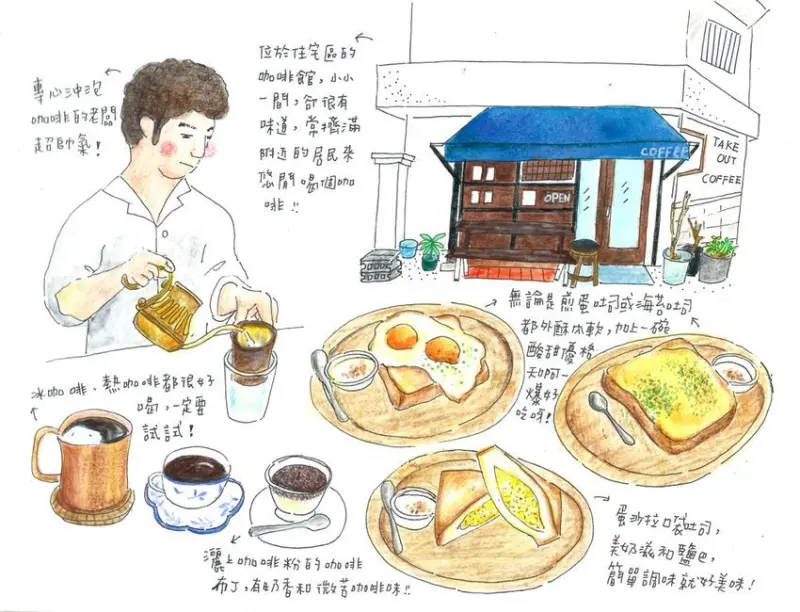 專心沖泡
咖啡的老闆
超帥氣!
位於住宅區的
咖啡館,小小
一間,卻很有
味道,常擠滿
附近的居民來
悠閒喝個咖
啡!!
COFFEE
TAKE
OUT
COFFEE
OPEN
無論是煎蛋吐司或海苔吐司
都外酥內軟,加上一碗
酸甜優格
天啊—
爆好
吃呀!
冰咖啡、熱咖啡都很好
喝,一定要
試試!
灑上咖啡粉的咖啡
布丁,有奶香和微苦咖啡味!!
蛋沙拉口袋吐司,
美奶滋和鹽巴,
簡單調味就好美味!